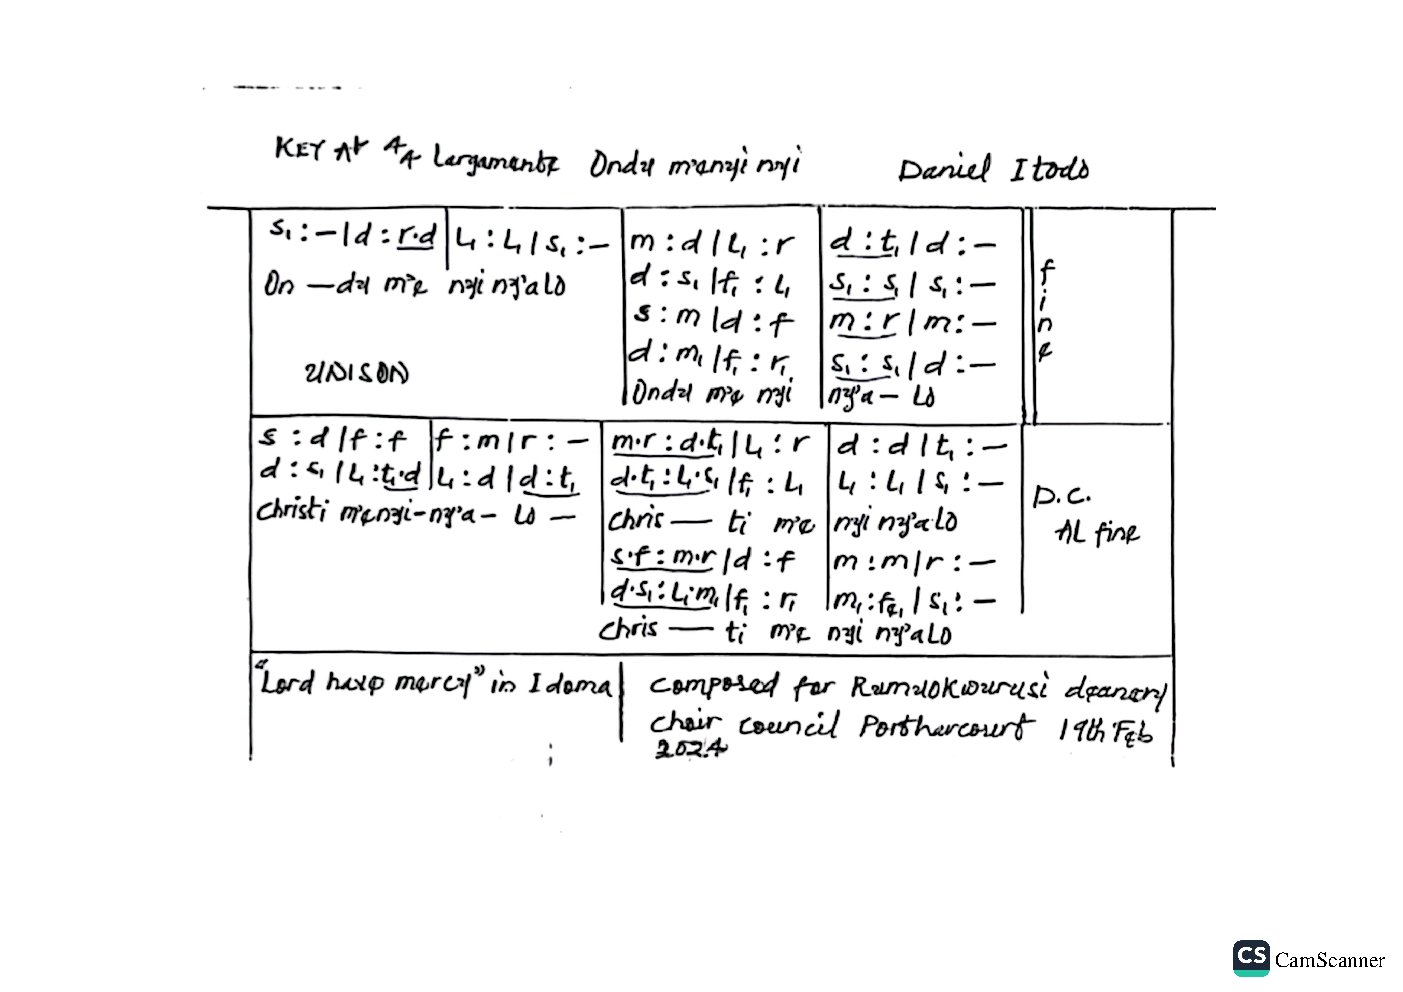 KEY Ab 4/4 Largamente Ondu m'enyi nyi Daniel Itodo
s₁ : – | d : r.d | l₁ : l₁ | s₁ : – | m : d | l₁ : r | d : t₁ | d : – fine
d : s₁ | f₁ : l₁ | s₁ : s₁ | s₁ : –
On – du m'e nyi ny'a lo
s : m | d : f | m : r | m : –
d : m₁ | f₁ : r₁ | s₁ : s₁ | d : –
UNISON
Ondu m'e nyi ny'a – lo
s : d | f : f | f : m | r : – | m.r : d.t₁ | l₁ : r | d : d | t₁ : –
d : s₁ | l₁ : t₁.d | l₁ : d | d : t₁ | d.t₁ : l₁.s₁ | f₁ : l₁ | l₁ : l₁ | s₁ : –
D.C.
Al fine
Christi m'enyi-ny'a – lo – chris — ti m'e nyi ny'a lo
s.f : m.r | d : f | m : m | r : –
d.s₁ : l₁.m₁ | f₁ : r₁ | m₁ : fe₁ | s₁ : –
chris — ti m'e nyi ny'a lo
"Lord have mercy" in Idoma
composed for Rumuokwurusi deanery
choir council Portharcourt 19th Feb
2024
CS CamScanner